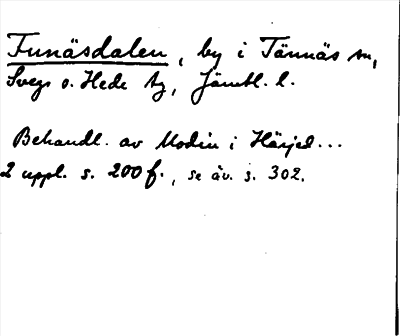 Funäsdalen, by i Tännäs sn,
Svegs o. Hede tg, Jämtl. l.
Behandl. av Modin i Härjed...
2 uppl. s. 200 f., se äv. s. 302.